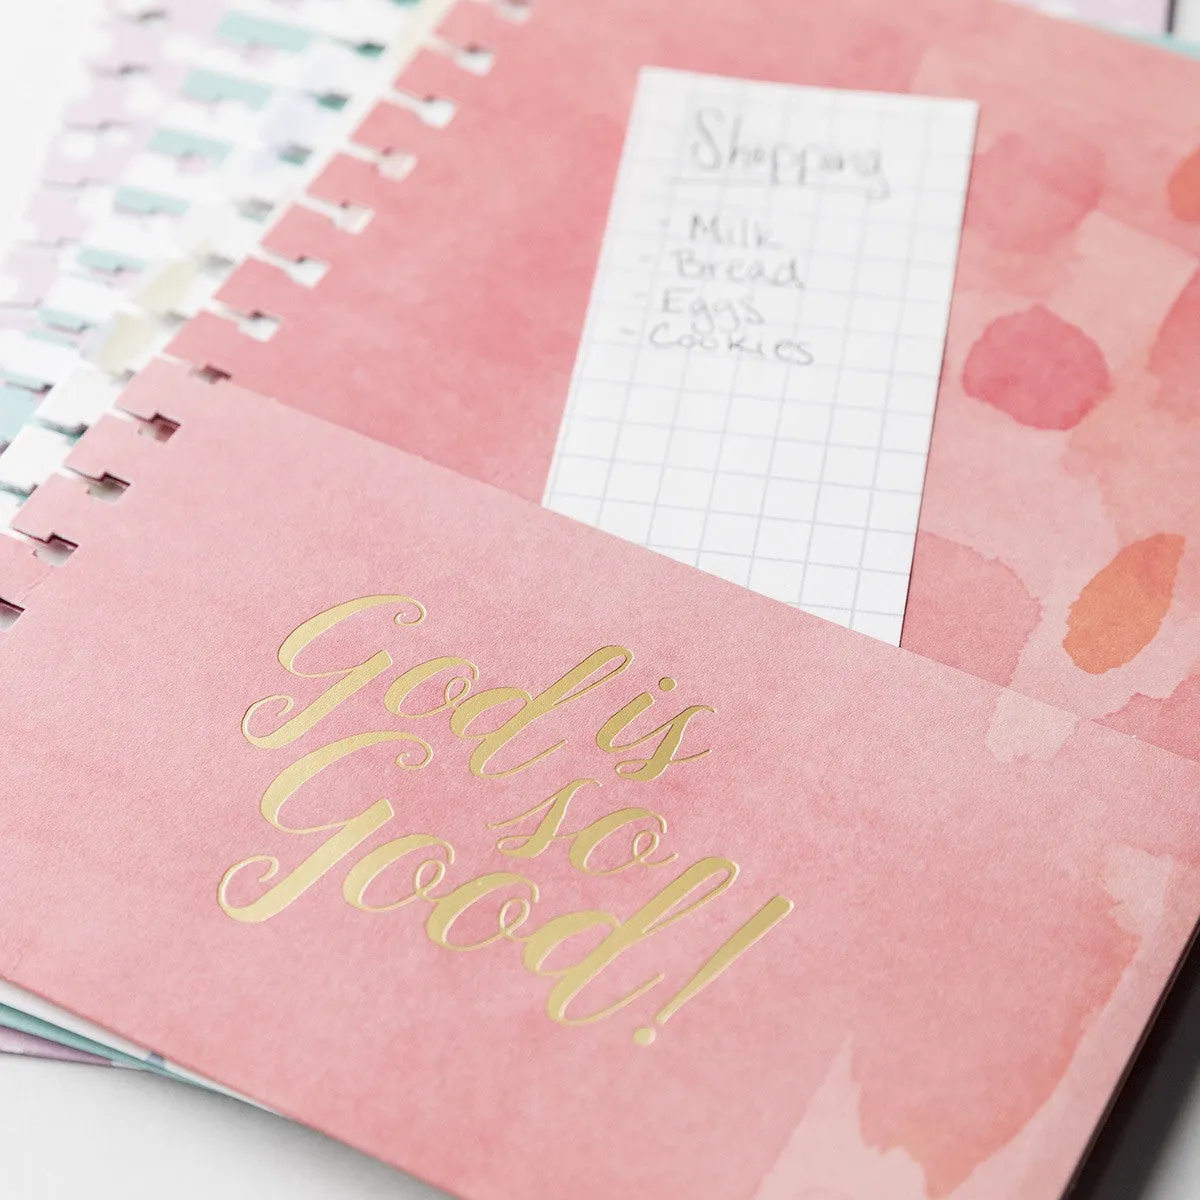 Shopping
- Milk
- Bread
- Eggs
- Cookies
God is
so
Good!